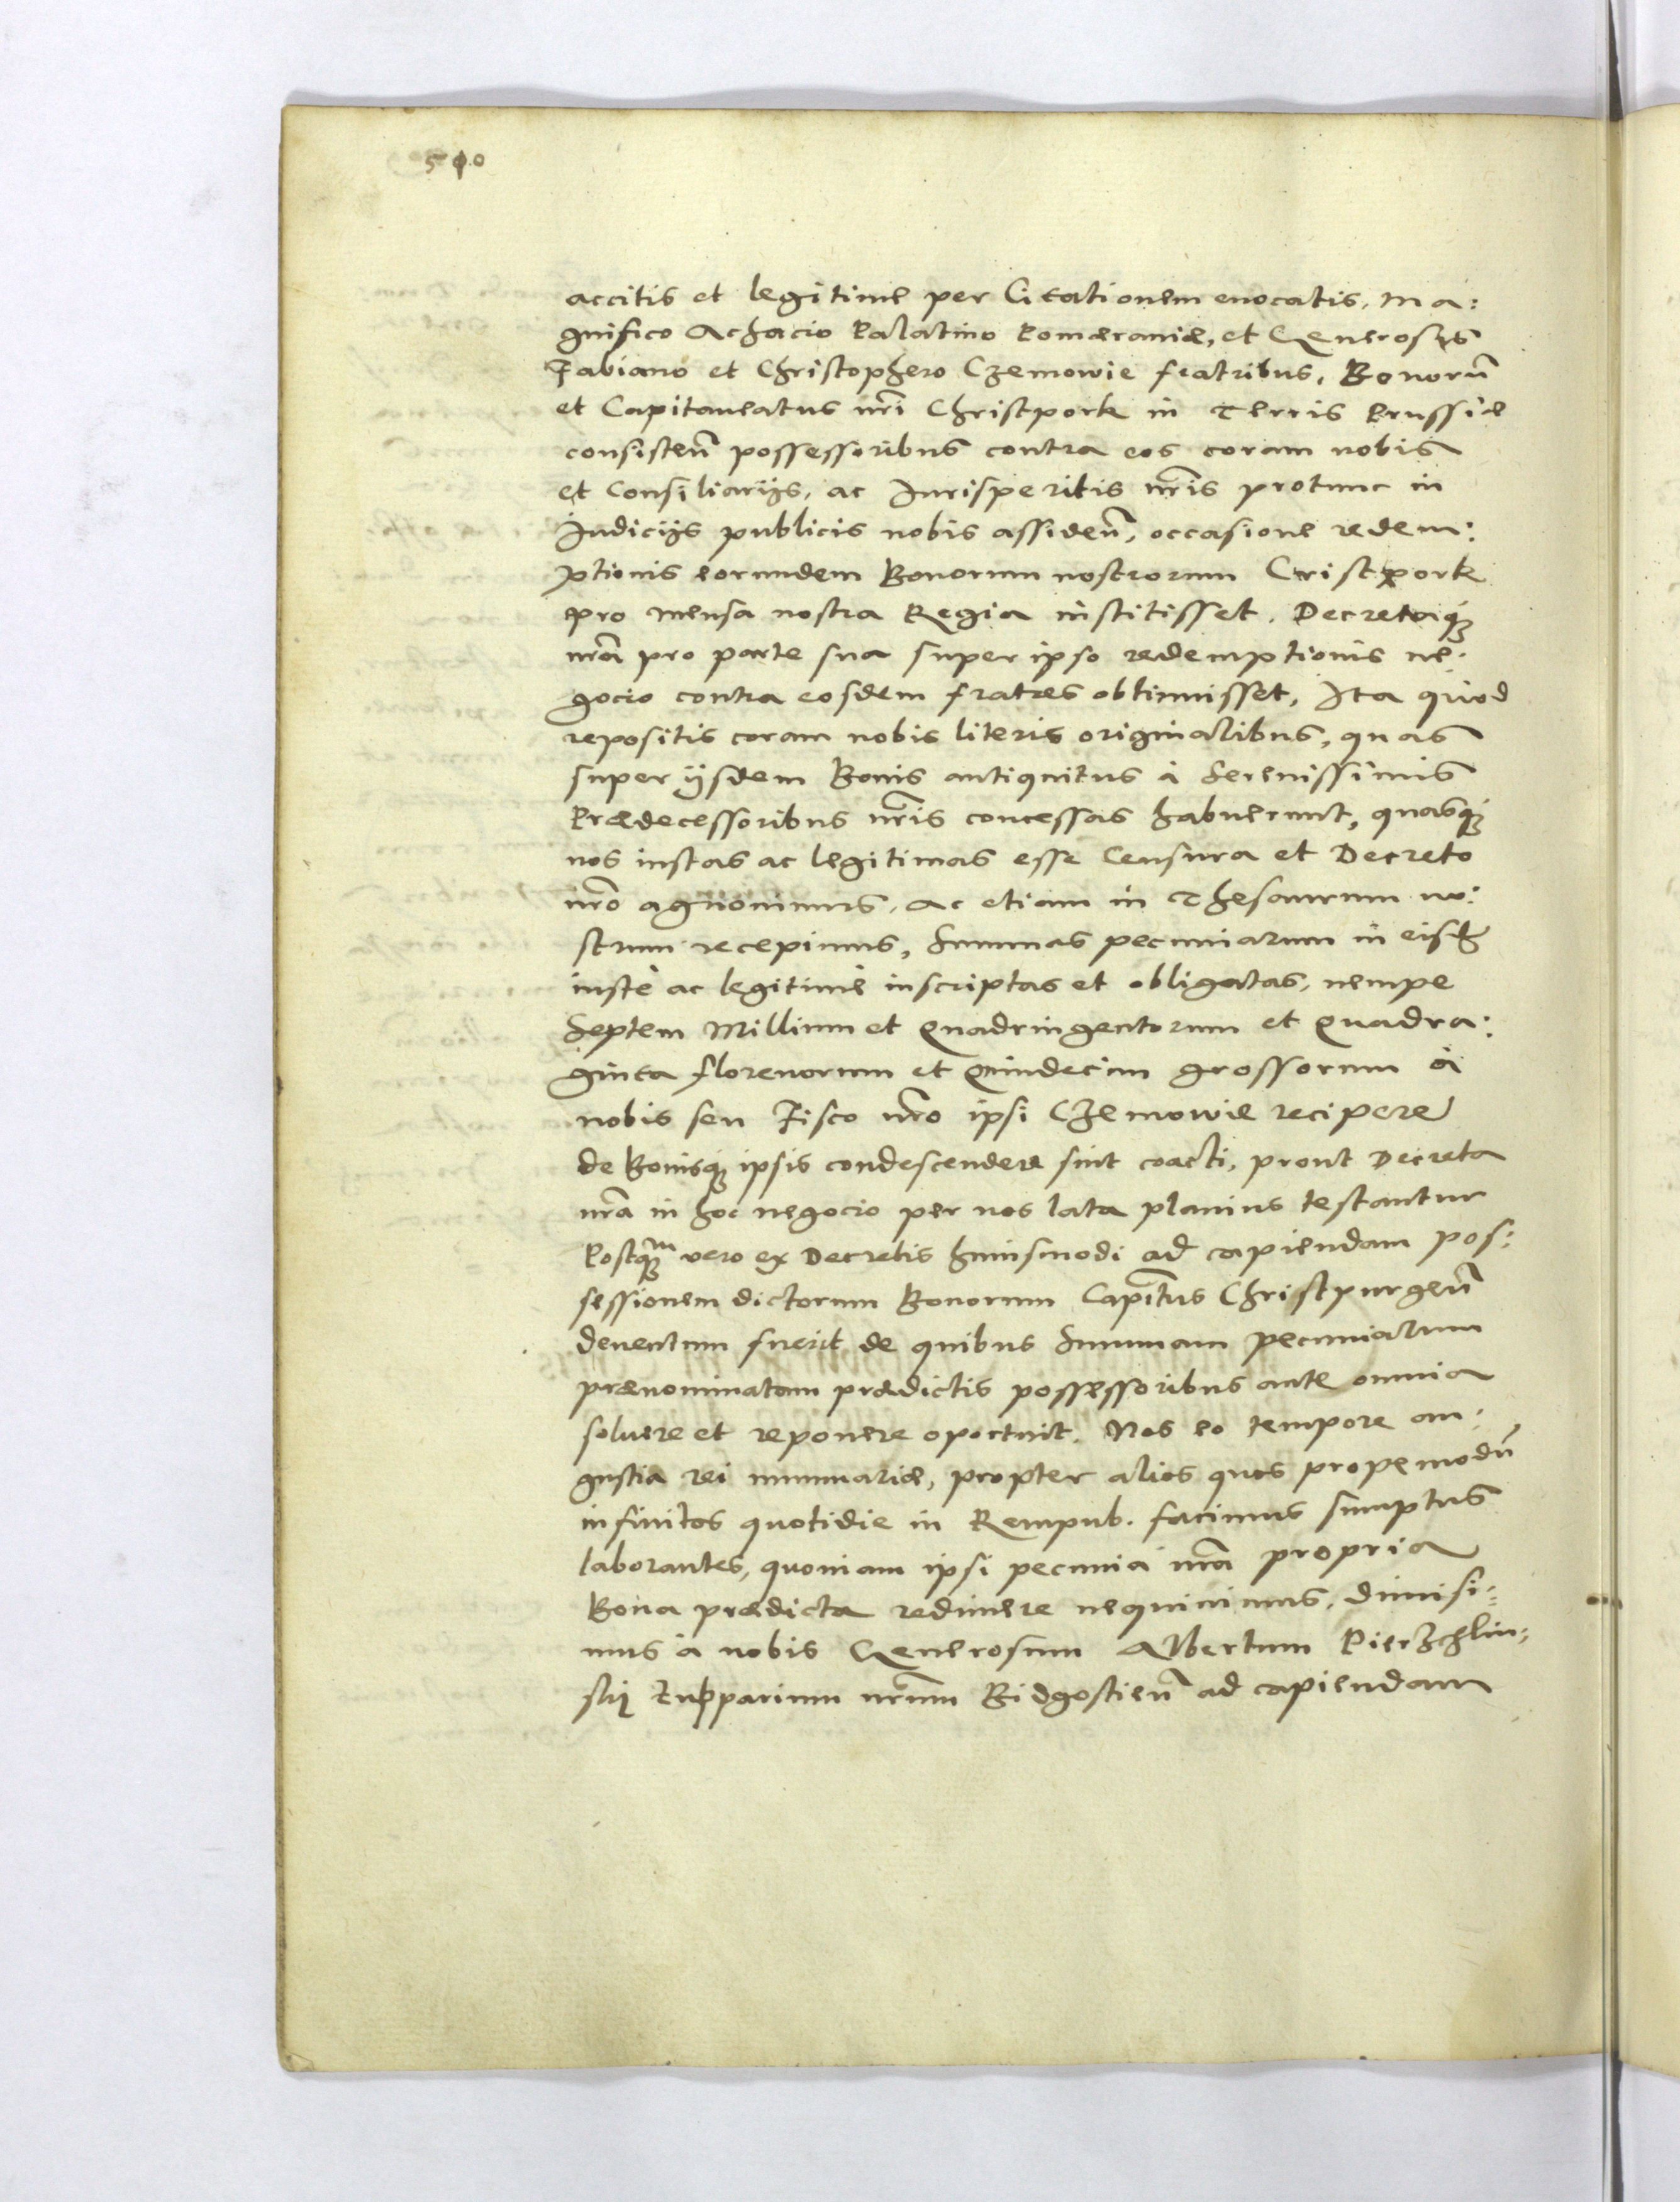 510
accitis et legitime per Citationem euocatis, Ma:
gnifico Achacio Palatino Pomæraniæ, et Generosis
Fabiano et Christophero Czemowie fratribus, Bonorũ
et Capitaneatus nr̃i Christpork in Terris Prussiæ
consisteñ possessoribus contra eos coram nobis
et Consiliarijs, ac Iurisperitis nr̃is protunc in
Iudicijs publicis nobis assideñ, occasione redem:
ptionis eorundem Bonorum nostrorum Cristpork
pro mensa nostra Regia institisset, Decretaq́ꝫ
nr̃a pro parte sua super ipso redemptionis ne:
gocio contra eosdem fratres obtinuisset, Ita quod
repositis coram nobis literis originalibus, quas
super ijsdem Bonis antiquitus à Serenissimis
Prædecessoribus nr̃is concessas habuerunt, quasq́ꝫ
nos iustas ac legitimas esse Censura et Decreto
nr̃o agnouimus, Ac etiam in Thesaurum no:
strum recepimus, Summas pecuniarum in eisd
iustè ac legitimè inscriptas et obligatas, nempe
Septem Millium et Quadringentorum et Quadra:
ginta florenorum et Quindecim grossorum à
nobis seu Fisco nr̃o ipsi Czemowie recipere
de Bonisq́ꝫ ipsis condescendere sint coacti, prout Decreta
nr̃a in hoc negocio per nos lata planius testantur
Postqꝫm vero ex Decretis huiusmodi ad capiendam pos:
sessionem dictorum Bonorum Capitꝰus Christpurgeñ
deuentum fuerit de quibus Summam pecuniarum
prænominatam prædictis possessoribus ante omnia
soluere et reponere oportuit. Nos eo tempore an:
gustia rei nummariæ, propter alios quos propemodũ
infinitos quotidie in Rempub. facimus sumptus
laborantes, quoniam ipsi pecunia nr̃a propria
Bona prædicta redimere nequiuimus, dimisi:
mus à nobis Generosum Albertum Pierzchlin:
skij Zupparium nr̃um Bidgostieñ ad capiendam